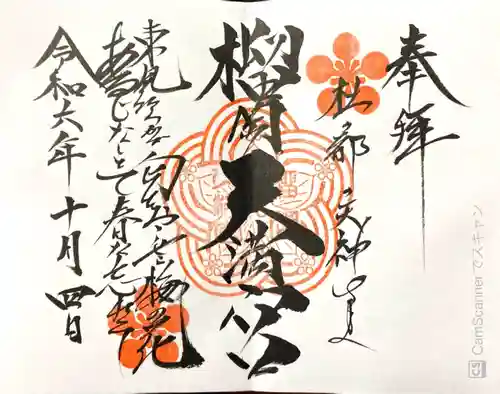 奉拝
杜之都 天神宮
榴岡天満宮
東風吹かば匂ひおこせよ梅の花
あるじなしとて春な忘れそ
令和六年十月四日
CamScannerでスキャン
CS